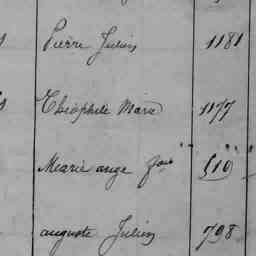 Pierre Julien 1181
Théophile Marie 1177
Marie ange 519
auguste Julien 798